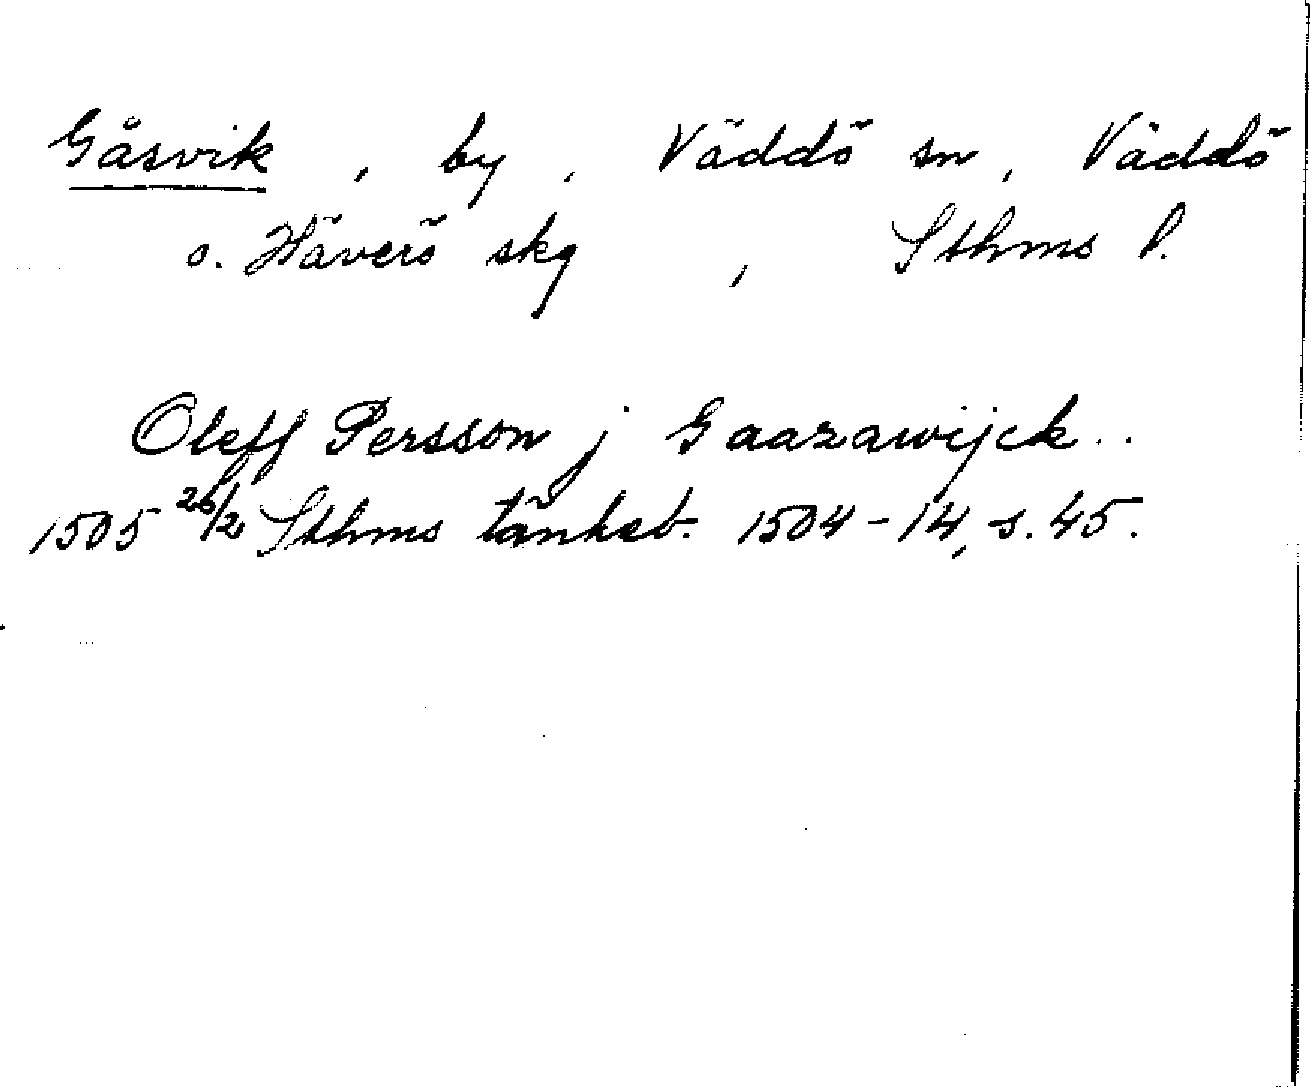 Gåsvik, by, Väddö sn, Väddö
o. Häverö skg, Sthms l.
Oleff Persson j Gaazawijck..
1505 26/2 Sthms tänkeb. 1504-14, s. 45.